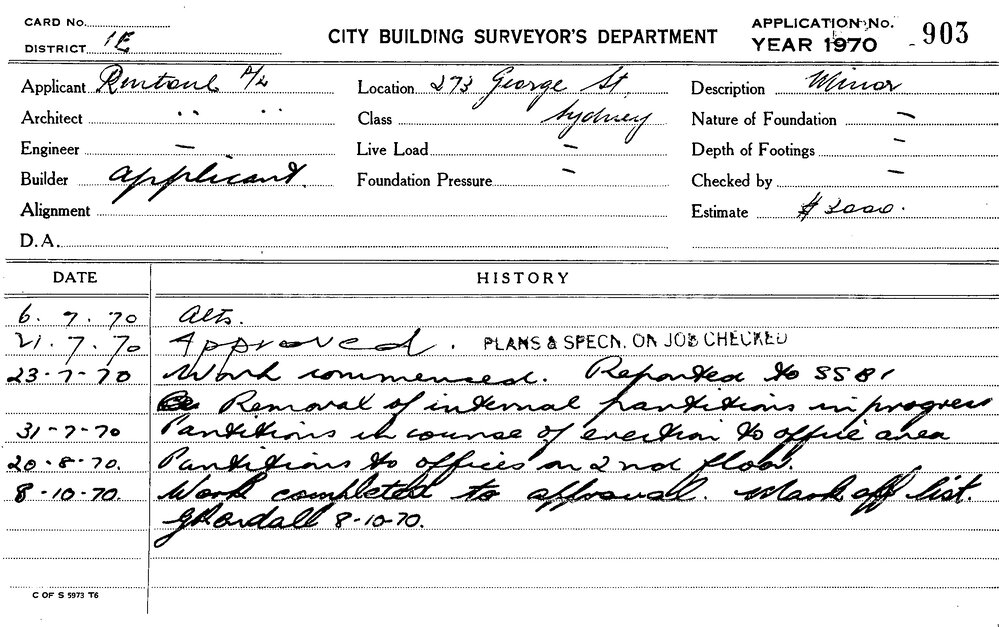 CARD No.
DISTRICT 1E
CITY BUILDING SURVEYOR'S DEPARTMENT
APPLICATION No.
YEAR 1970 - 903
Applicant Rentoul P/L Location 273 George St. Description Minor
Architect " " Class Sydney Nature of Foundation –
Engineer – Live Load – Depth of Footings –
Builder applicant. Foundation Pressure – Checked by –
Alignment Estimate $3000.
D.A.
DATE HISTORY
6.7.70 Alts.
21.7.70 Approved. PLANS & SPECN. ON JOB CHECKED
23-7-70 Work commenced. Reported to SSB1
Removal of internal partitions in progress
31-7-70 Partitions in course of erection to office area
20-8-70. Partitions to offices on 2nd floor.
8-10-70. Work completed to approval. Mark off list.
8-10-70.
C OF S 5973 T6